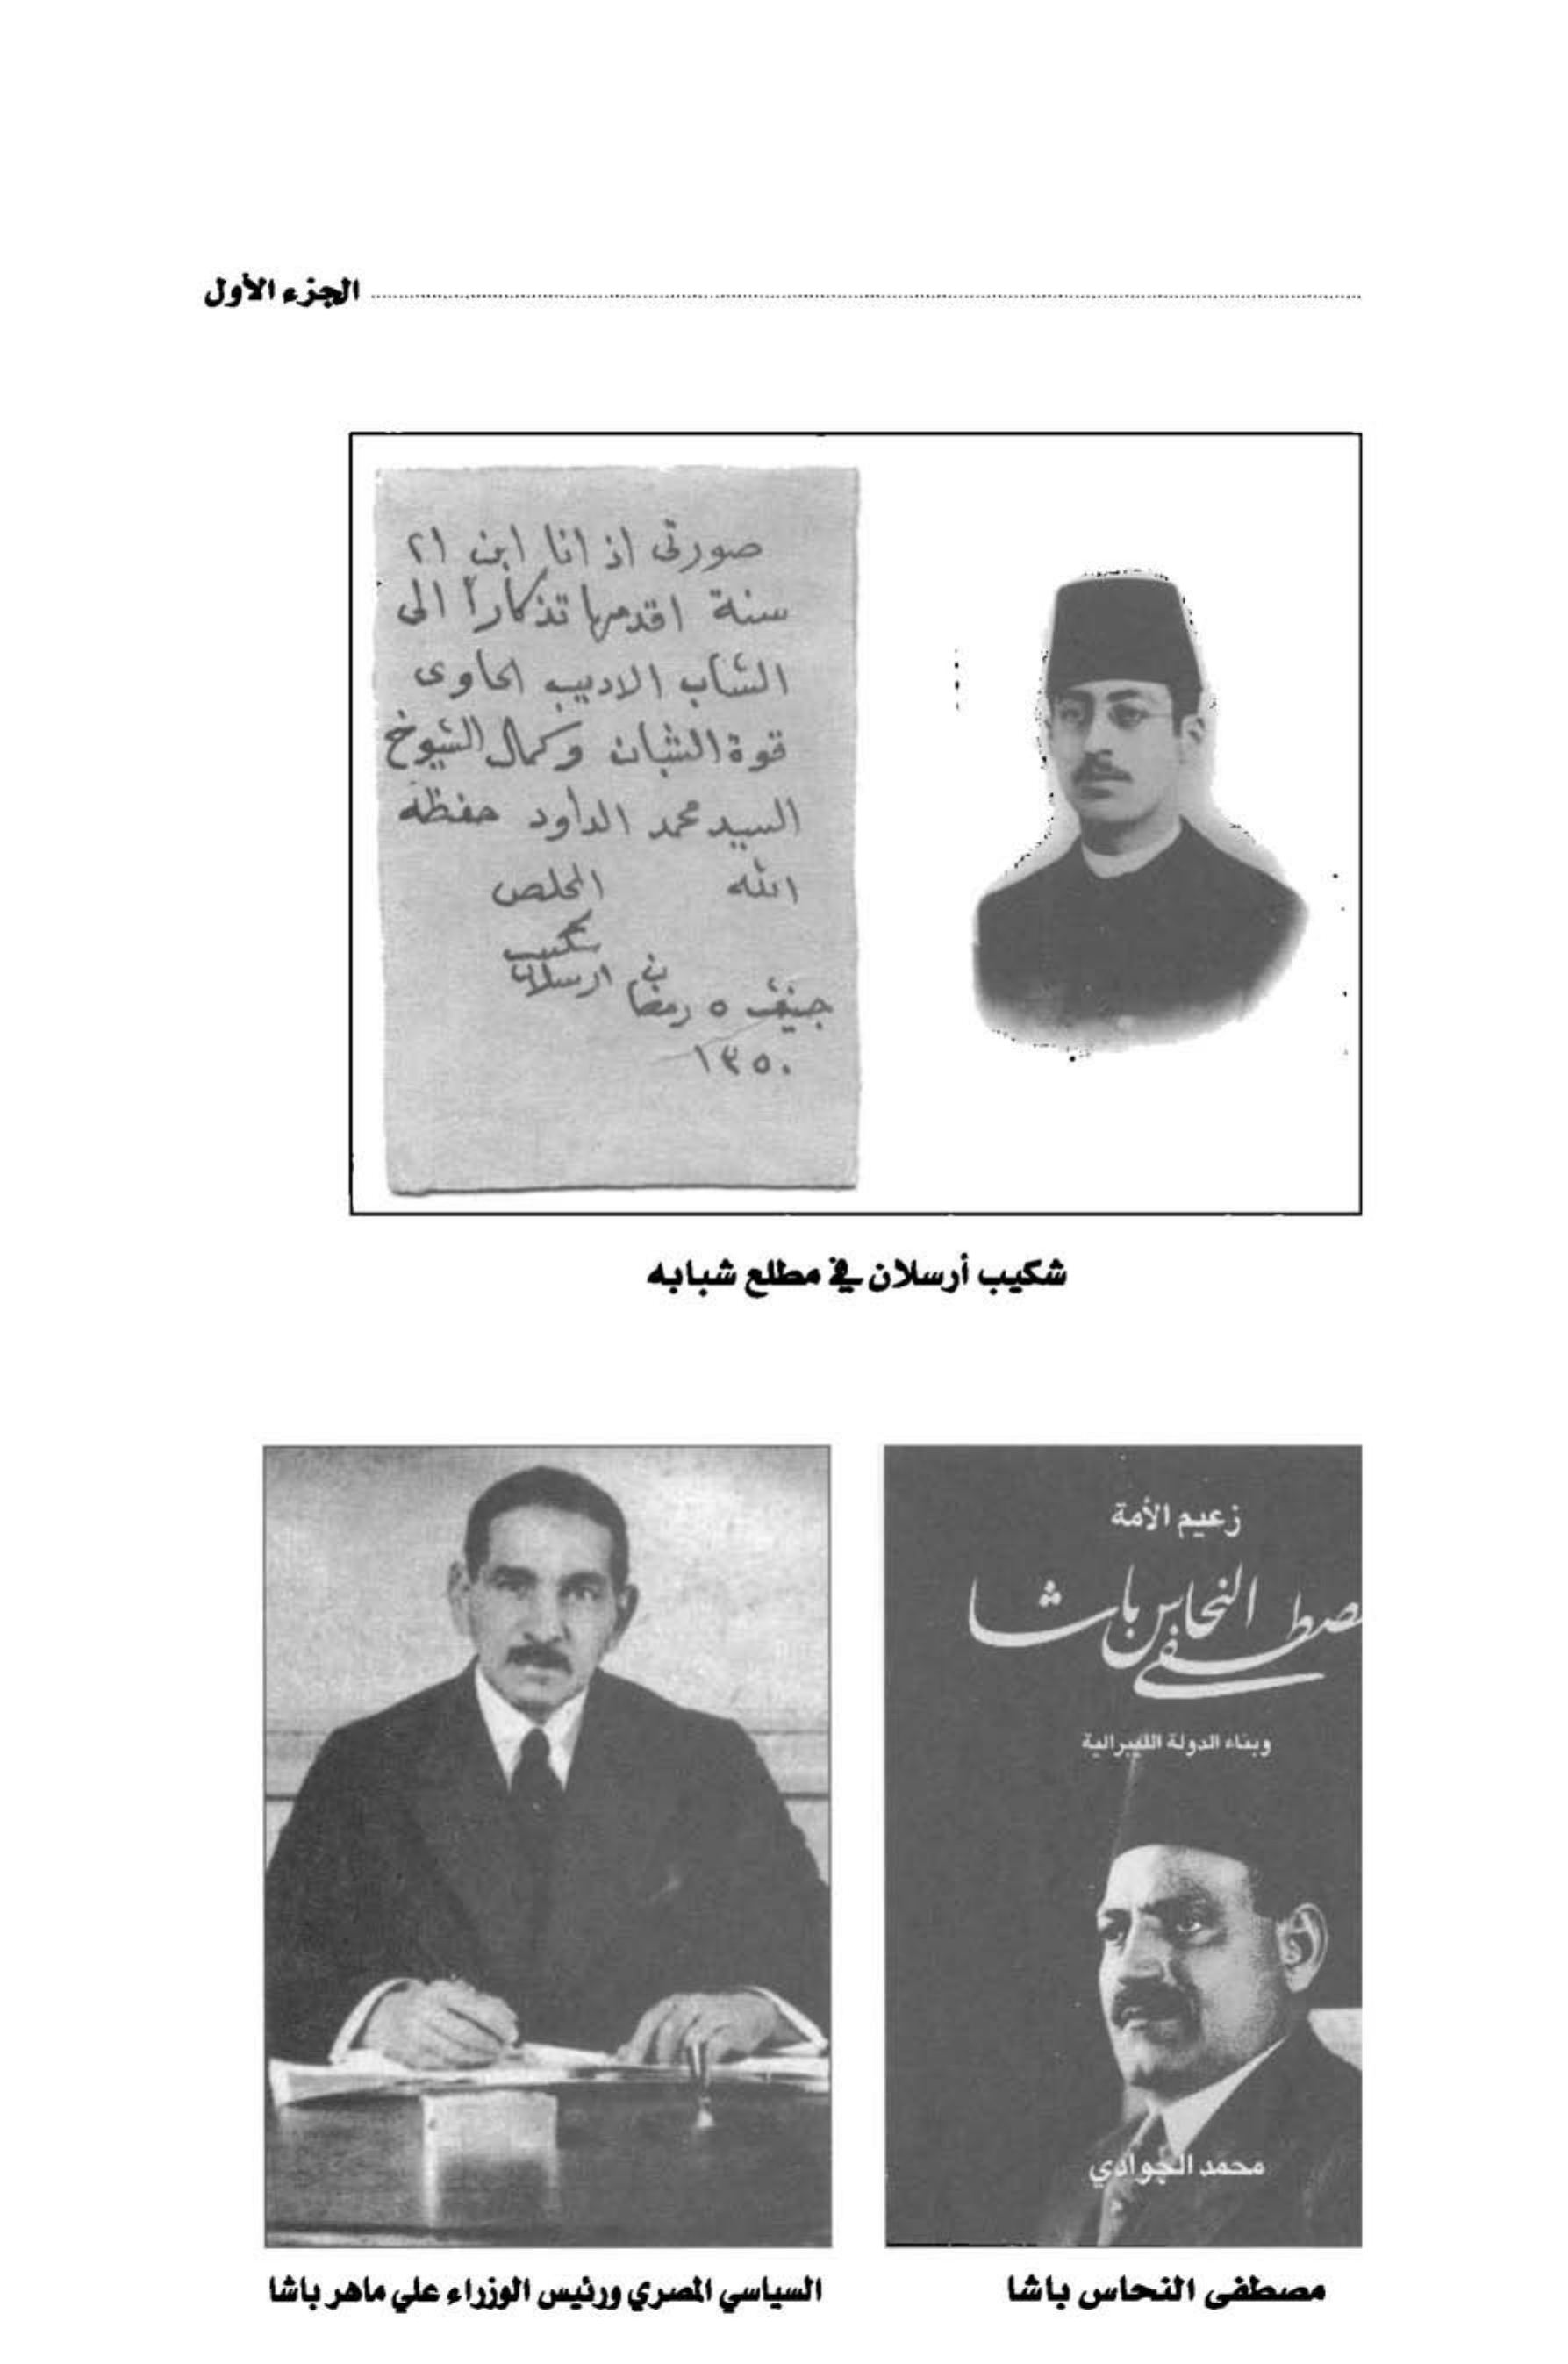 الجزء الأول
صورتى اذ انا ابن ٢١
سنة اقدمها تذكاراً الى
الشاب الاديب الحاوى
قوة الشبان وكمال الشيوخ
السيد محمد الداود حفظه
الله المخلص
شكيب
ارسلان
جنيف ٥ رمضان
١٣٥٠
شكيب أرسلان في مطلع شبابه
زعيم الأمة
مصطفى النحاس باشا
وبناء الدولة الليبرالية
محمد الجوادي
مصطفى النحاس باشا
السياسي المصري ورئيس الوزراء علي ماهر باشا